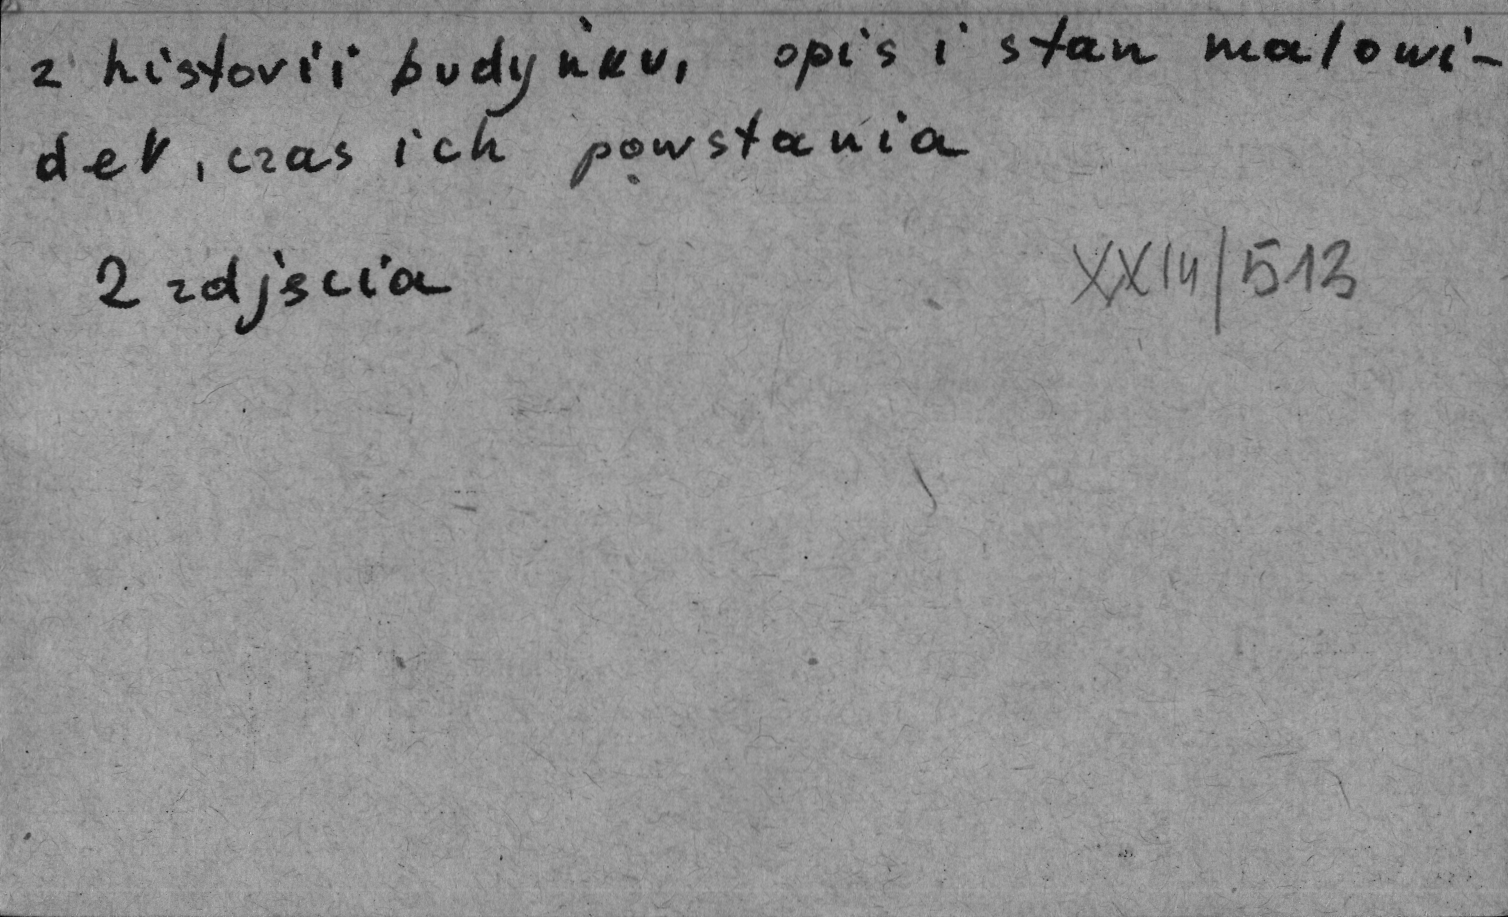 z historii budynku, opis i stan malowi-
deł, czas ich powstania
2 zdjęcia
XXIII/513